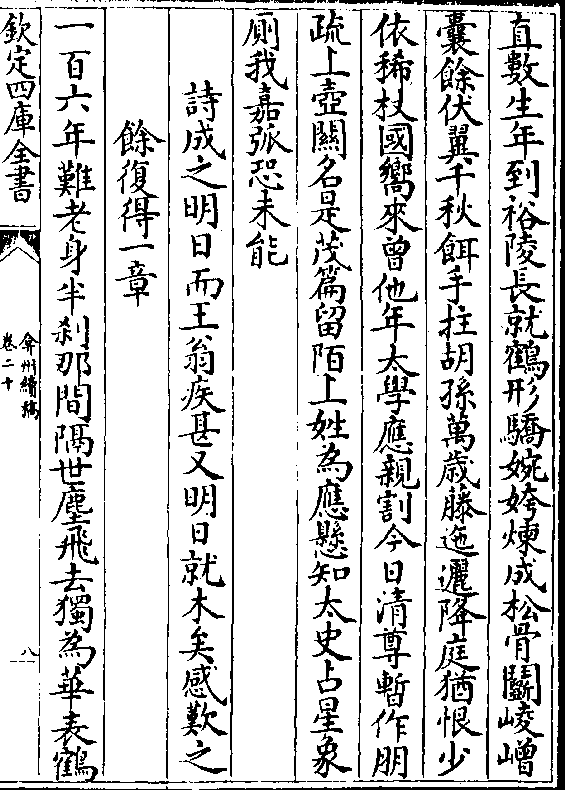 直數生年到裕陵長就鶴形驕婉姱煉成松骨鬬崚嶒
囊餘伏翼千秋餌手拄胡孫萬歳藤迤邐降庭猶恨少
依稀杖國嚮來曾他年太學應親割今日清尊暫作朋
疏上壺關名是茂篇留陌上姓為應懸知太史占星象
厠我嘉弧恐未能
詩成之明日而王翁疾甚又明日就木矣感歎之
餘復得一章
一百六年難老身半刹那間隔世塵飛去獨為華表鶴
欽定四庫全書
弇州續稿
卷二十
八